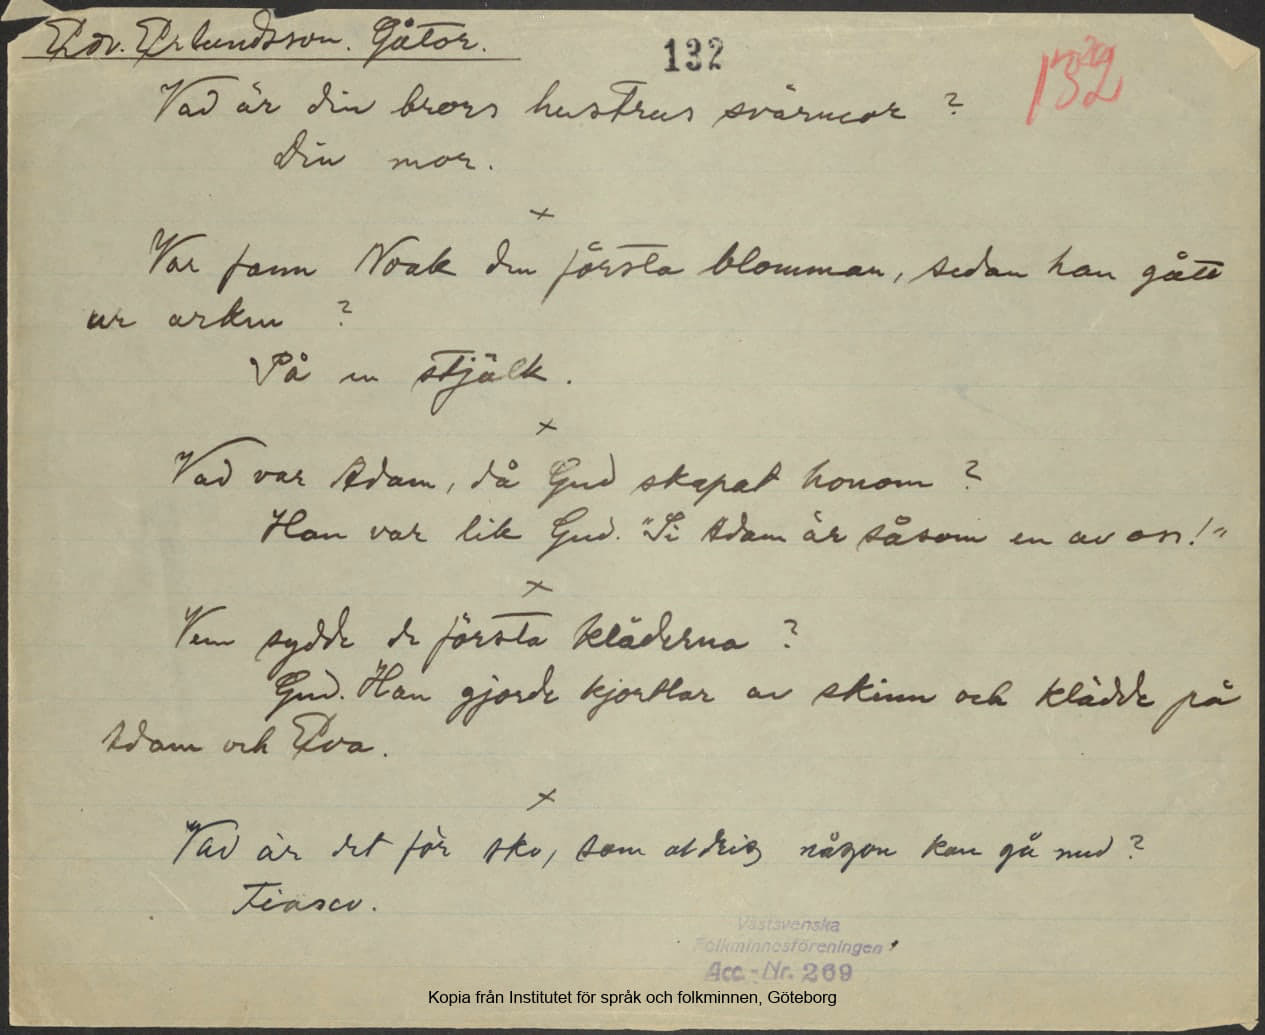 Edv. Erlundsson. Gåtor.
132
132
Vad är din brors hustrus svärmor ?
Din mor.
x
Var fann Noak den första blomman, sedan han gått
ur arken ?
På en stjälk.
x
Vad var Adam, då Gud skapat honom ?
Han var lik Gud. "Si Adam är såsom en av oss!"
x
Vem sydde de första kläderna ?
Gud. Han gjorde kjortlar av skinn och klädde på
Adam och Eva.
x
Vad är det för sko, som aldrig någon kan gå med ?
Fiasco.
Västsvenska
Folkminnesföreningen
Acc.-Nr. 269
Kopia från Institutet för språk och folkminnen, Göteborg